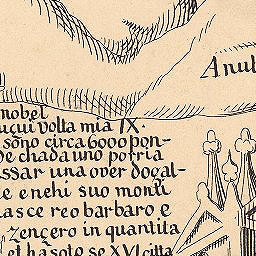 Anul
nobel
uqui volta mia IX.
sono circa 6000 pon-
de chadauno potria
ssar una over dogal-
e enehi suo monti
asce reo barbaro e
zençero in quantita
et ha soto se XVI citta